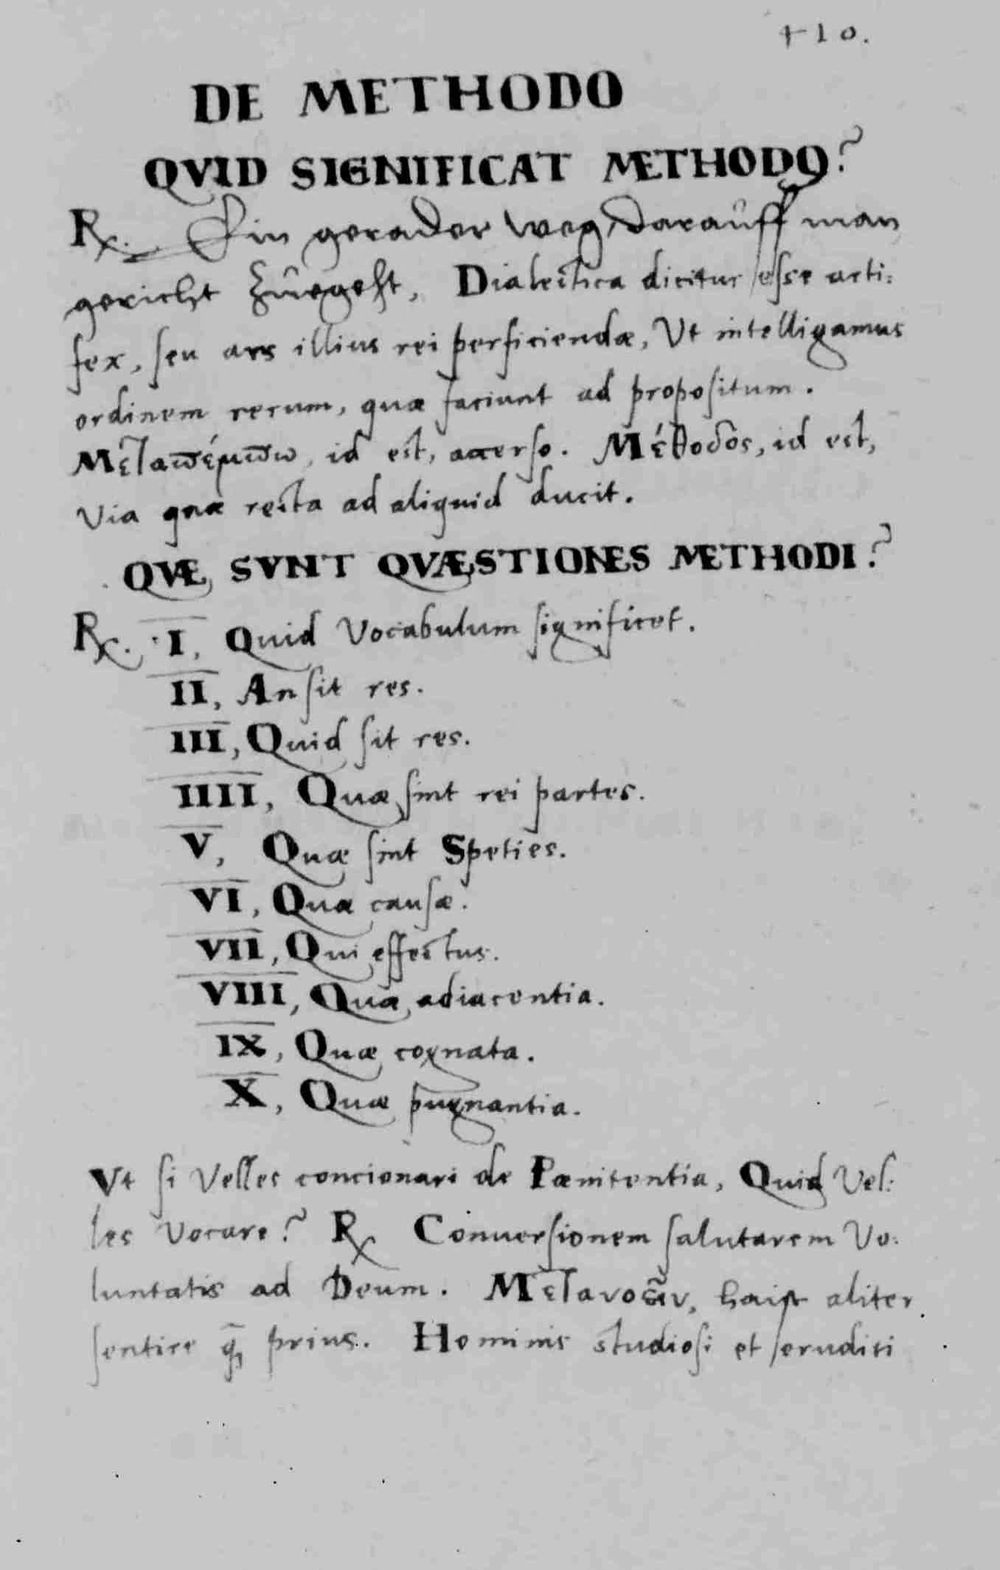 410.
DE METHODO
QVID SIGNIFICAT METHODO?
R. Ein gerader weg, darauff man
gericht zuegeht, Dialectica dicitur esse arti:
fex, seu ars illius rei perficiendæ, Vt intelligamus
ordinem rerum, quæ faciunt ad propositum.
Μεταπέμπω, id est, accerso. Μέθοδος, id est,
Via quæ recta ad aliquid ducit.
QVÆ SVNT QVÆSTIONES METHODI?
R. I, Quid Vocabulum significet.
II, An sit res.
III, Quid sit res.
IIII, Quæ sint rei partes.
V, Quæ sint Speties.
VI, Quæ causæ.
VII, Qui effectus.
VIII, Quæ adiacentia.
IX, Quæ cognata.
X, Quæ pugnantia.
Vt si Velles concionari de Pænitentia, Quid Vel:
les Vocare? R Conuersionem salutarem Vo:
luntatis ad Deum. Μετανοεῖν, haist aliter
sentire q̃ prius. Hominis studiosi et eruditi